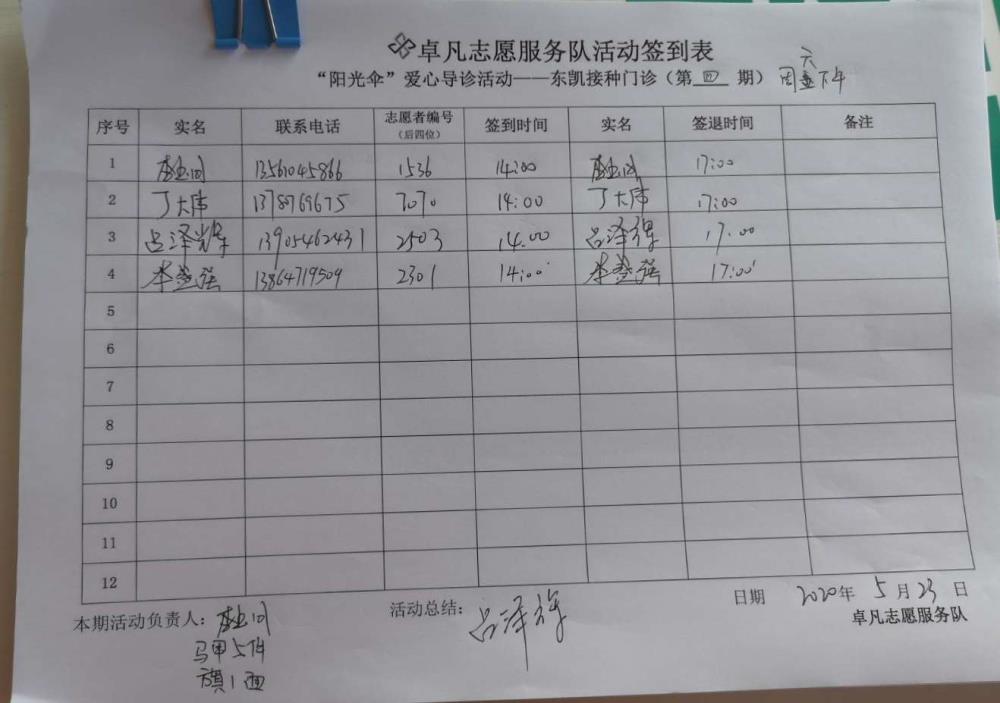 卓凡志愿服务队活动签到表
“阳光伞”爱心导诊活动——东凯接种门诊（第四期）周六下午
序号 实名 联系电话 志愿者编号（后四位） 签到时间 实名 签退时间 备注
1 13561045866 1536 14:00 17:00
2 丁大伟 1378769675 7070 14:00 丁大伟 17:00
3 吕泽辉 13905462431 2503 14:00 吕泽辉 17:00
4 李营强 13864719509 2301 14:00 李营强 17:00
5
6
7
8
9
10
11
12
本期活动负责人： 活动总结：吕泽辉 日期 2020年5月23日
马甲5件 卓凡志愿服务队
旗1面